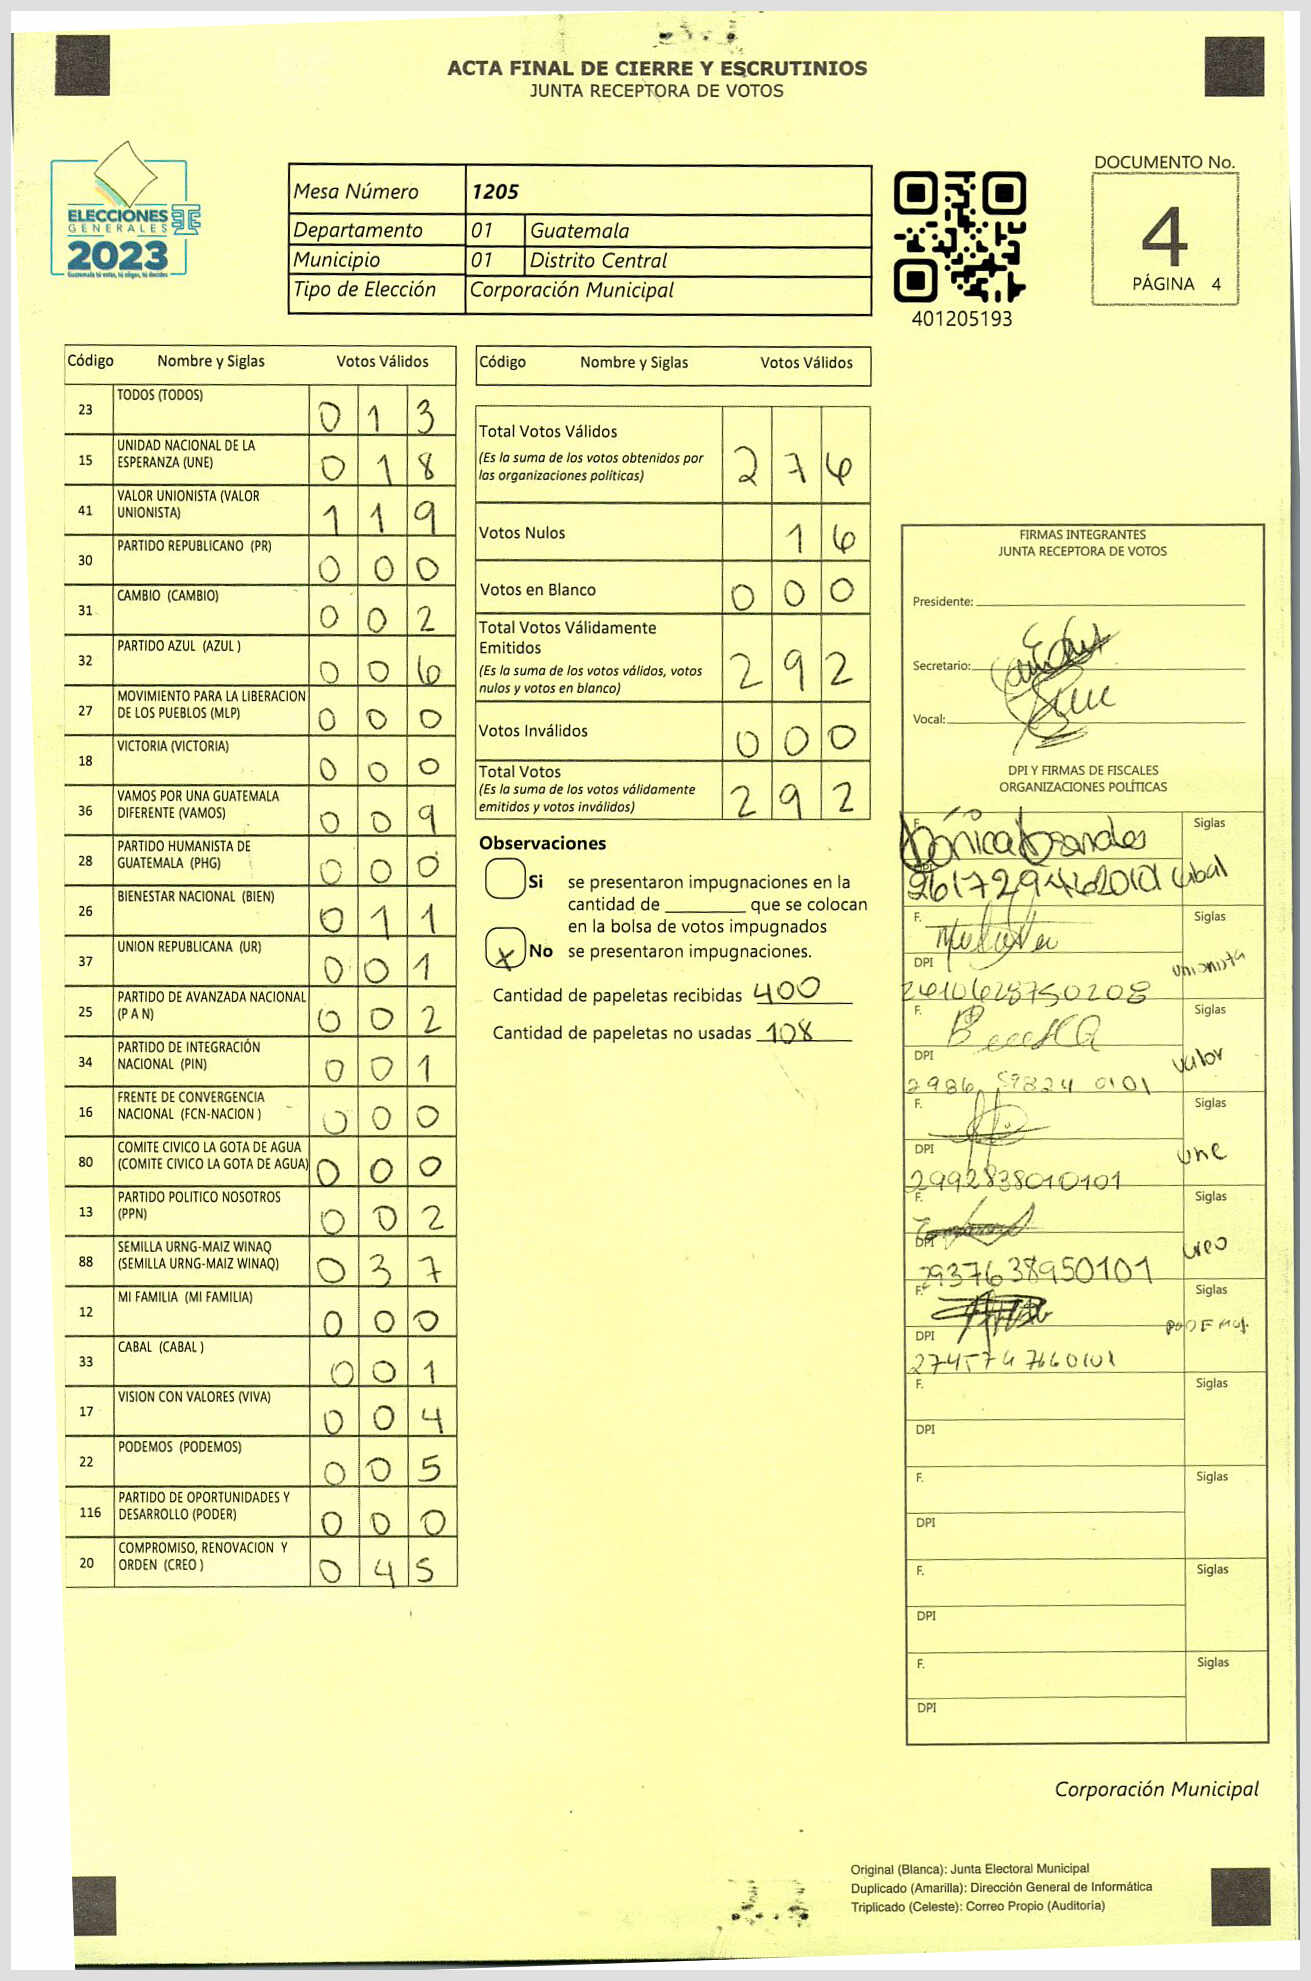 ACTA FINAL DE CIERRE Y ESCRUTINIOS
JUNTA RECEPTORA DE VOTOS
ELECCIONES
GENERALES
2023
Guatemala tú votas, tú eliges, tú decides
Mesa Número 1205
Departamento 01 Guatemala
Municipio 01 Distrito Central
Tipo de Elección Corporación Municipal
401205193
DOCUMENTO No.
4
PÁGINA 4
Código Nombre y Siglas Votos Válidos
23 TODOS (TODOS) 0 1 3
15 UNIDAD NACIONAL DE LA
ESPERANZA (UNE) 0 1 8
41 VALOR UNIONISTA (VALOR
UNIONISTA) 1 1 9
30 PARTIDO REPUBLICANO (PR) 0 0 0
31 CAMBIO (CAMBIO) 0 0 2
32 PARTIDO AZUL (AZUL ) 0 0 6
27 MOVIMIENTO PARA LA LIBERACION
DE LOS PUEBLOS (MLP) 0 0 0
18 VICTORIA (VICTORIA) 0 0 0
36 VAMOS POR UNA GUATEMALA
DIFERENTE (VAMOS) 0 0 9
28 PARTIDO HUMANISTA DE
GUATEMALA (PHG) 0 0 0
26 BIENESTAR NACIONAL (BIEN) 0 1 1
37 UNION REPUBLICANA (UR) 0 0 1
25 PARTIDO DE AVANZADA NACIONAL
(P A N) 0 0 2
34 PARTIDO DE INTEGRACIÓN
NACIONAL (PIN) 0 0 1
16 FRENTE DE CONVERGENCIA
NACIONAL (FCN-NACION ) 0 0 0
80 COMITE CIVICO LA GOTA DE AGUA
(COMITE CIVICO LA GOTA DE AGUA) 0 0 0
13 PARTIDO POLITICO NOSOTROS
(PPN) 0 0 2
88 SEMILLA URNG-MAIZ WINAQ
(SEMILLA URNG-MAIZ WINAQ) 0 3 7
12 MI FAMILIA (MI FAMILIA) 0 0 0
33 CABAL (CABAL ) 0 0 1
17 VISION CON VALORES (VIVA) 0 0 4
22 PODEMOS (PODEMOS) 0 0 5
116 PARTIDO DE OPORTUNIDADES Y
DESARROLLO (PODER) 0 0 0
20 COMPROMISO, RENOVACION Y
ORDEN (CREO ) 0 4 5
Código Nombre y Siglas Votos Válidos
Total Votos Válidos
(Es la suma de los votos obtenidos por
las organizaciones políticas) 2 7 6
Votos Nulos 1 6
Votos en Blanco 0 0 0
Total Votos Válidamente
Emitidos
(Es la suma de los votos válidos, votos
nulos y votos en blanco) 2 9 2
Votos Inválidos 0 0 0
Total Votos
(Es la suma de los votos válidamente
emitidos y votos inválidos) 2 9 2
Observaciones
Si se presentaron impugnaciones en la
cantidad de ________ que se colocan
en la bolsa de votos impugnados
X No se presentaron impugnaciones.
Cantidad de papeletas recibidas 400
Cantidad de papeletas no usadas 108
FIRMAS INTEGRANTES
JUNTA RECEPTORA DE VOTOS
Presidente:
Secretario:
Vocal:
DPI Y FIRMAS DE FISCALES
ORGANIZACIONES POLÍTICAS
F. Siglas
DPI
F. Siglas
DPI unionista
2410628750208
F. Siglas
DPI valor
2986 59824 0101
F. Siglas
DPI une
2992838010101
F. Siglas
DPI creo
2937638950101
F. Siglas
DPI PODEMOS
F. Siglas
DPI
F. Siglas
DPI
F. Siglas
DPI
F. Siglas
DPI
Corporación Municipal
Original (Blanca): Junta Electoral Municipal
Duplicado (Amarilla): Dirección General de Informática
Triplicado (Celeste): Correo Propio (Auditoría)